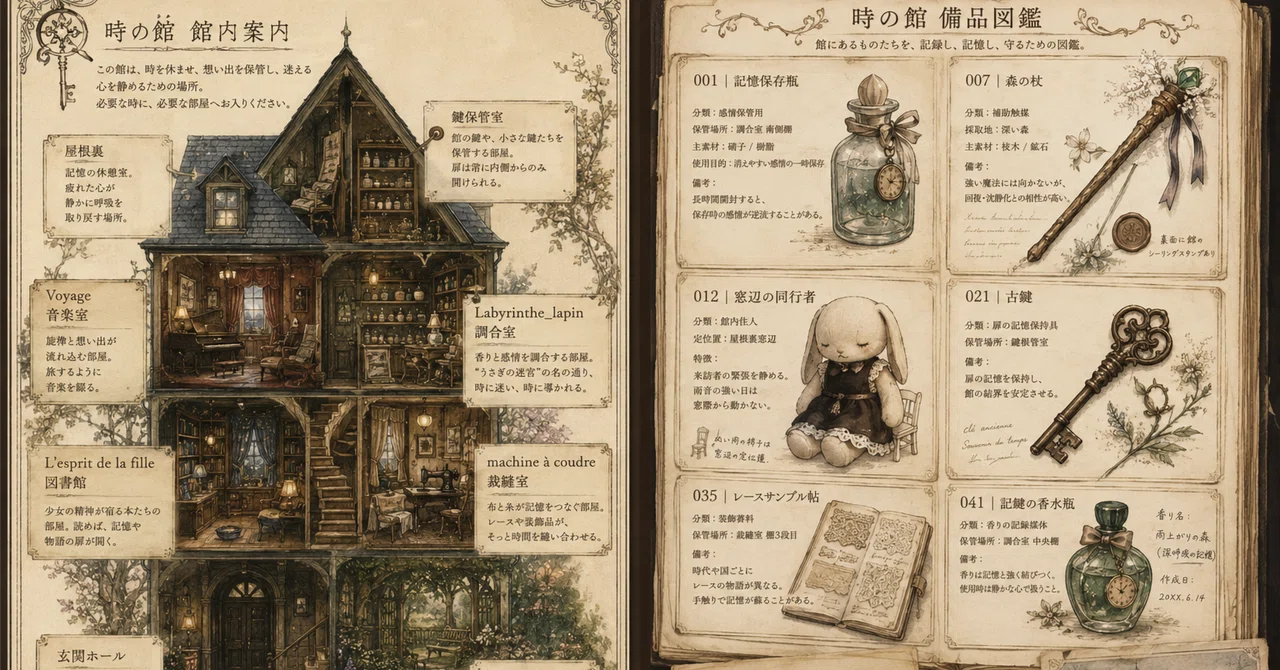 時の館 館内案内
この館は、時を休ませ、想い出を保管し、迷える
心を静めるための場所。
必要な時に、必要な部屋へお入りください。
屋根裏
記憶の休憩室。
疲れた心が
静かに呼吸を
取り戻す場所。
鍵保管室
館の鍵や、小さな鍵たちを
保管する部屋。
扉は常に内側からのみ
開けられる。
Voyage
音楽室
旋律と想い出が
流れ込む部屋。
旅するように
音楽を綴る。
Labyrinthe_lapin
調合室
香りと感情を調合する部屋。
"うさぎの迷宮"の名の通り、
時に迷い、時に導かれる。
L'esprit de la fille
図書館
少女の精神が宿る本たちの
部屋。読めば、記憶や
物語の扉が開く。
machine à coudre
裁縫室
布と糸が記憶をつなぐ部屋。
レースや装飾品が、
そっと時間を縫い合わせる。
玄関ホール
時の館 備品図鑑
館にあるものたちを、記録し、記憶し、守るための図鑑。
001 | 記憶保存瓶
分類：感情保管用
保管場所：調合室 南側棚
主素材：硝子 / 樹脂
使用目的：消えやすい感情の一時保存
備考：
長時間開封すると、
保存時の感情が逆流することがある。
007 | 森の杖
分類：補助触媒
採取地：深い森
主素材：枝木 / 鉱石
備考：
強い魔法には向かないが、
回復・沈静化との相性が高い。
裏面に館の
シーリングスタンプあり
012 | 窓辺の同行者
分類：館内住人
定位置：屋根裏窓辺
特徴：
来訪者の緊張を静める。
雨音の強い日は
窓際から動かない。
ぬい用の椅子は
窓辺の定位置
021 | 古鍵
分類：扉の記憶保持具
保管場所：鍵保管室
備考：
扉の記憶を保持し、
館の結界を安定させる。
clé ancienne
Souvenir du temps
035 | レースサンプル帖
分類：装飾資料
保管場所：裁縫室 棚3段目
備考：
時代や国ごとに
レースの物語が異なる。
手触りで記憶が蘇ることがある。
041 | 記鍵の香水瓶
分類：香りの記録媒体
保管場所：調合室 中央棚
備考：
香りは記憶と強く結びつく。
使用時は静かな心で扱うこと。
香り名：
雨上がりの森
(深呼吸の記憶)
作成日：
20XX.6.14